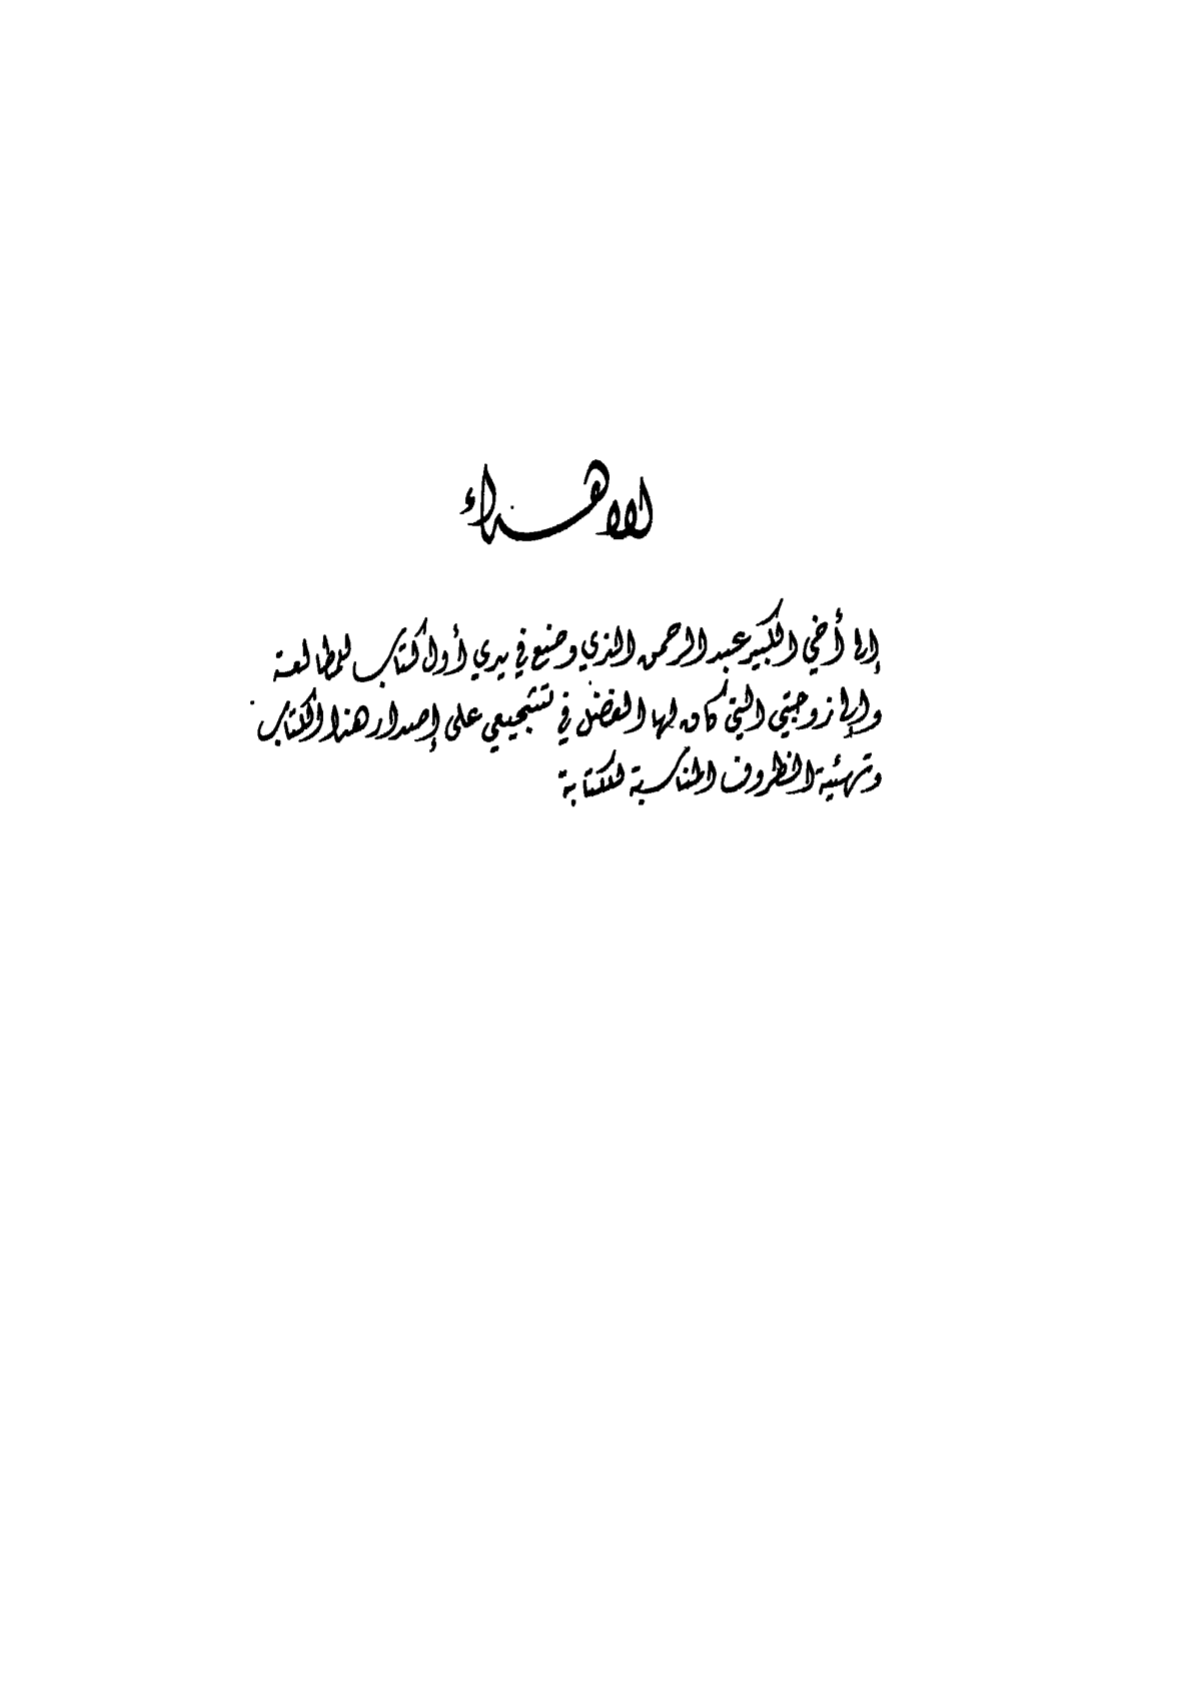 الاهداء
إلى أخي الكبير عبد الرحمن الذي وضع في يدي أول كتاب للمطالعة
وإلى زوجتي التي كان لها الفضل في تشجيعي على إصدار هذا الكتاب
وتهيئة الظروف المناسبة للكتابة